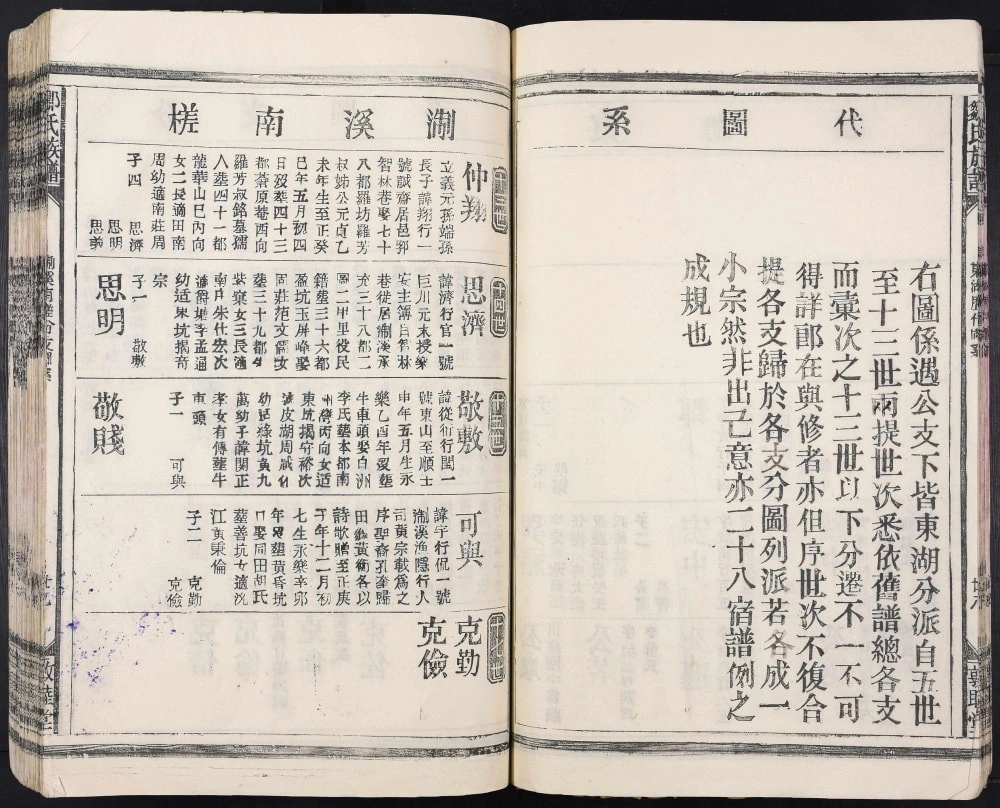 代圖系
右圖係遇公支下皆東湖分派自五世
至十三世兩提世次悉依舊譜總各支
而彙次之十三世以下分遷不一不可
得詳郎在與修者亦但序世次不復合
提各支歸於各支分圖列派若各成一
小宗然非出己意亦二十八宿譜例之
成規也
湖溪南槎
仲翔
立義元孫端孫
長子諱翔行一
號誠齋居邑郛
智林巷娶七十
八都羅坊羅芳
叔姊公元貞乙
未年生至正癸
巳年五月初四
日歿葬四十三
都菴原菴酉向
羅芳叔銘墓孺
人葬四十一都
龍華山巳內向
女二長適田南
周幼適南莊周
子四 思濟
思明
思義
思濟
諱濟行官一號
巨川元末授樂
安主簿自智林
巷從居湖溪承
充三十八都二
圖二甲里役民
籍葬三十六都
盈坑玉屏峰娶
周莊范文儒女
葬三十九都
紫棄女三長適
南𠂆朱仕宏次
適爵墟李孟通
幼适東坑揭奇
宗
子一 敬敷
思明
敬敷
諱從衍行閏一
號東山至順壬
申年五月生永
樂乙酉年歿葬
牛車頭娶白洲
李氏葬本都南
州灣丙向女适
東坑揭守裕次
适皮湖周咸
幼适綠坑黃九
萬幼子諱閏正
孝女有傳葬牛
車頭
子一 可與
敬賤
可與
諱宇行侃一號
湖溪漁隱行人
司黃宗載為之
序聖裔孔諤歸
田御黃衛各以
詩歌贈至正庚
子年十二月初
七生永樂辛卯
年歿葬黃昏坑
口娶同田胡氏
葬善坑女適沈
江黃秉倫
子二 克勤
克儉
克勤
克儉